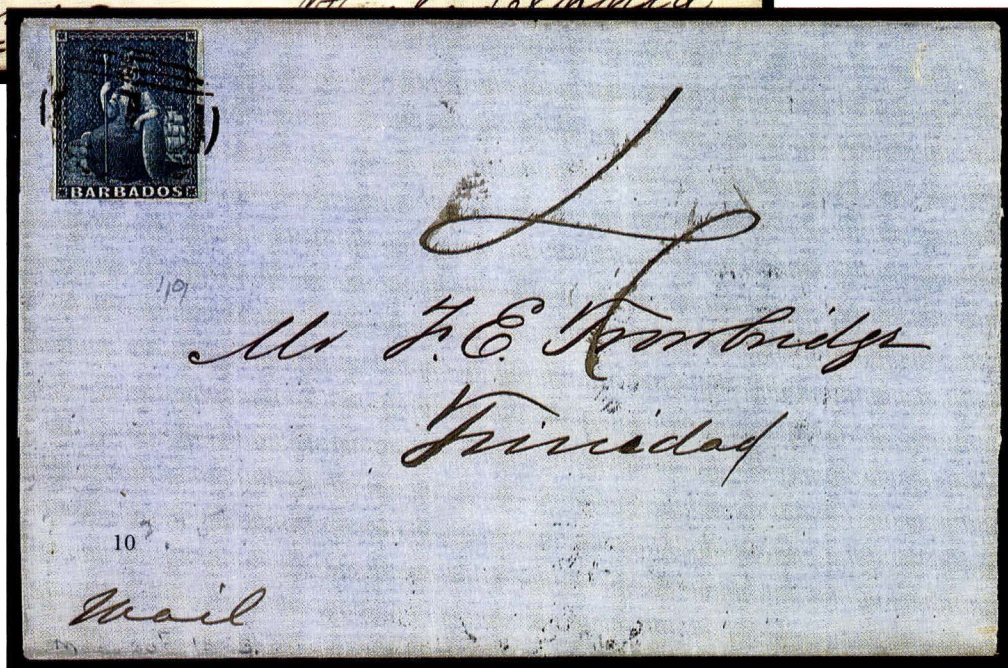 BARBADOS
4
Mr F. E. Trowbridge
Trinidad
10
Mail